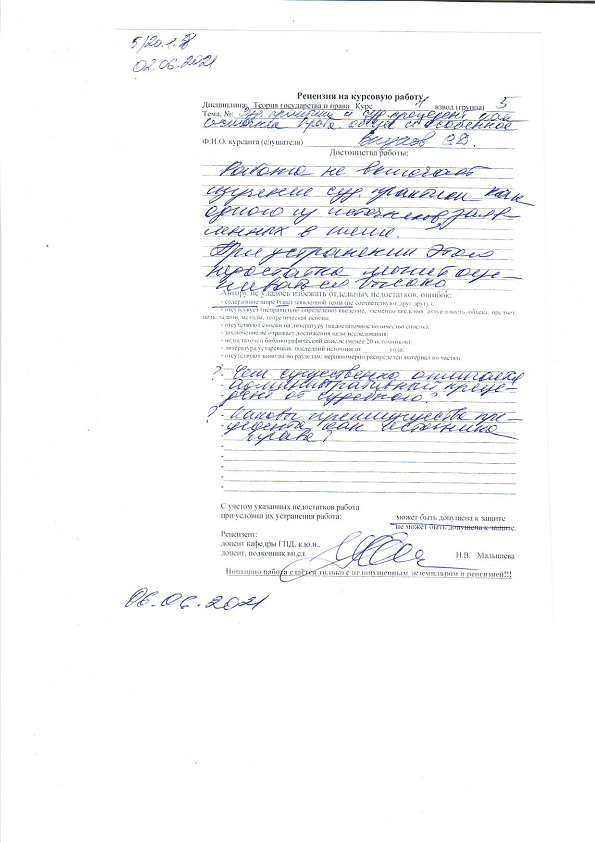 5/20.1.
02.06.2021
Рецензия на курсовую работу
Дисциплина: Теория государства и права Курс II взвод (группа) 5
Тема, №: Суд. практика и суд. прецедент как
источники права: общее и особенное
Ф.И.О. курсанта (слушателя) С.Д.
Достоинства работы:
Работа не включает
изучение суд. практики как
одного из источников, заяв-
ленных в теме.
При устранении этого
недостатка может оце-
ниваться высоко
Автору не удалось избежать отдельных недостатков, ошибок:
- содержание шире (уже) заявленной темы (не соответствуют друг другу);
- отсутствует (неправильно определено) введение, элементы введения: актуальность, объект, предмет,
цель, задачи, методы, теоретическая основа;
- отсутствуют сноски на литературу (недостаточное количество сносок);
- заключение не отражает достижения цели исследования;
- недостаточен библиографический список (менее 20 источников);
- литература устаревшая, последний источник от ________года.
- отсутствуют выводы по разделам; неравномерно распределён материал по частям;
? Чем существенно отличается
административный преце-
дент от судебного?
? Каковы преимущества пре-
цедента как источника
права?
С учетом указанных недостатков работа
при условии их устранения работа: может быть допущена к защите
не может быть допущена к защите.
Рецензент:
доцент кафедры ГПД, к.ю.н.,
доцент, полковник вн.сл. И.В. Малышева
Повторно работа сдаётся только с недопущенным экземпляром и рецензией!!!
06.06.2021